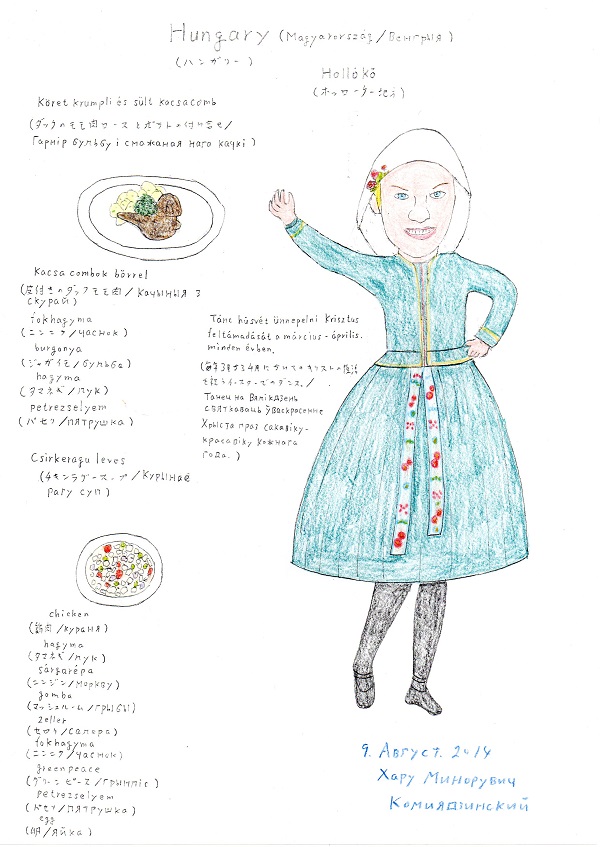 Hungary (Magyarország/Венгрыя)
(ハンガリー)
Hollókő
(ホッローケー地方)
Köret krumpli és sült kacsacomb
(ダックのモモ肉ソースとポテトの付け合せ/
Гарнір бульбу і смажаная нага качкі)
Kacsa combok bőrrel
(皮付きのダックモモ肉/Качыныя з
скурай)
fokhagyma
(ニンニク/часнок)
burgonya
(ジャガイモ/бульба)
hagyma
(タマネギ/лук)
petrezselyem
(パセリ/пятрушка)
Csirkeragu leves
(チキンラグースープ/Курынае
рагу суп)
Tánc húsvét ünnepelni Krisztus
feltámadását a március-április.
minden évben.
(毎年3月から4月にかけてのキリストの復活
を祝うイースターでのダンス./
Танец на Вялікдзень
святкаваць ўваскрасенне
Хрыста праз сакавіку-
красавіку кожнага
года.)
chicken
(鶏肉/кураня)
hagyma
(タマネギ/лук)
sárgarépa
(ニンジン/моркву)
gomba
(マッシュルーム/грыбы)
zeller
(セロリ/салера)
fokhagyma
(ニンニク/часнок)
greenpeace
(グリーンピース/грынпіс)
petrezselyem
(パセリ/пятрушка)
egg
(卵/яйка)
9. Август. 2014
Хару Минорувич
Комиядзинский